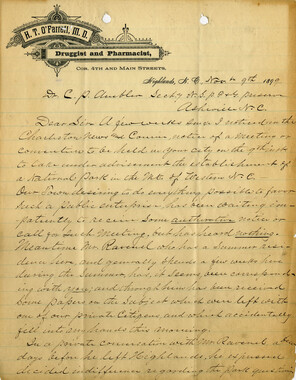 H. T. O'Farrell, M. D.
Druggist and Pharmacist,
COR. 4TH AND MAIN STREETS.
Highlands, N. C. Nov 9th 1899
Dr C. P. Ambler Secty N. S. P. & G. preserve
Asheville N. C.
Dear Sir A few weeks since I noticed in the
Charleston News and Courier notice of a meeting or
convention to be held in your city on the
to take under advisement the establishment of
a National Park in the Mts of Western N. C.
Our town desiring to do everything possible to favor
such a public enterprise has been waiting im-
patiently to receive some authoritative notice or
call for such meeting, but has heard nothing.
Meantime Mr Ravenel who has a summer resi-
dence here and generally spends a few weeks here
during the summer, has, it seems, been correspond-
ing with you, and through him has been received
some papers on the subject which were left with
one of our private citizens and which accidentally
fell into my hands this morning.
In a private conversation with Mr Ravenel a few
days before he left Highlands, he expressed
decided indifference regarding the park question